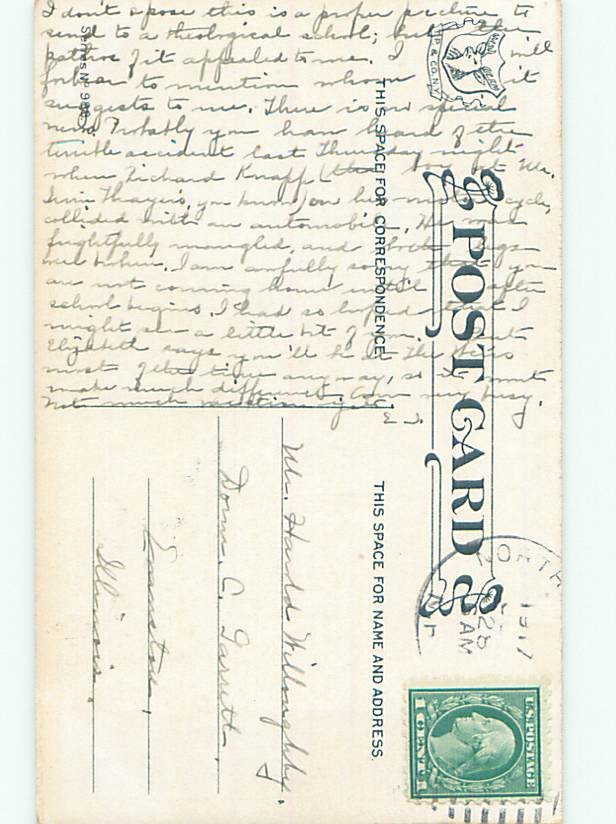 I don't spose this is a proper picture to
send to a theological school; but the
pathos of it appealed to me. I will
forbear to mention whom it
suggests to me. There is no special
news. Probably you have heard of the
terrible accident last Thursday night
when Richard Knapp (the boy at Mr.
Irvin Thayer's, you know) on his motorcycle,
collided with an automobile. He was
frightfully mangled, and both legs
were broken. I am awfully sorry that you
are not coming home until after
school begins. I had so hoped that I
might see a little bit of you. Aunt
Elizabeth says you'll be at the
most of the time anyway, so it won't
make much difference. Am very busy.
Not much
Series No 983
THIS SPACE FOR CORRESPONDENCE.
POST CARD
THIS SPACE FOR NAME AND ADDRESS.
Mr. Harold Willoughby,
Dorm. C. Garrett,
Evanston,
Illinois.
NORTH
28
AM
1917
U.S. POSTAGE
1 CENT 1